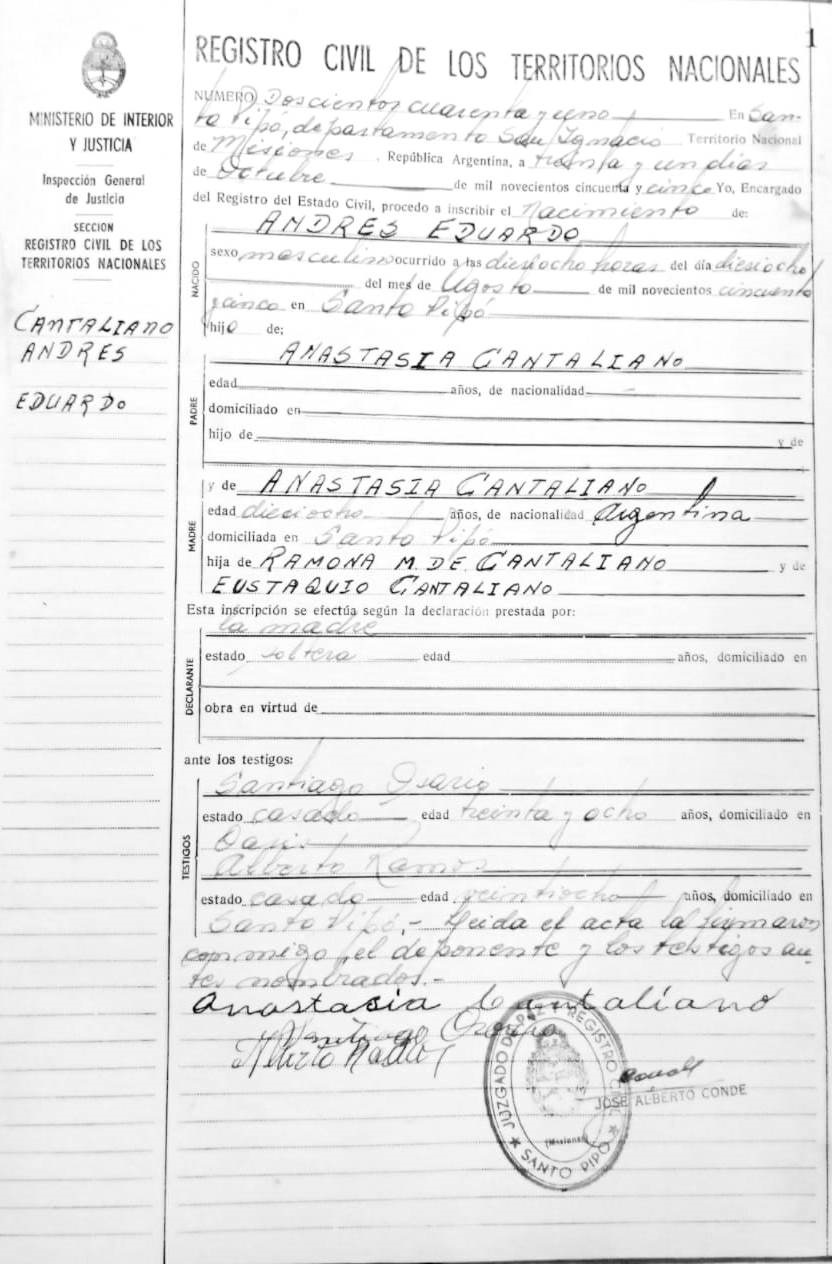 1
MINISTERIO DE INTERIOR
Y JUSTICIA
Inspección General
de Justicia
SECCION
REGISTRO CIVIL DE LOS
TERRITORIOS NACIONALES
CANTALIANO
ANDRES
EDUARDO
REGISTRO CIVIL DE LOS TERRITORIOS NACIONALES
NUMERO Doscientos cuarenta y uno En San-
to Pipó, departamento San Ignacio Territorio Nacional
de Misiones, República Argentina, a treinta y un dias
de Octubre de mil novecientos cincuenta y cinco Yo, Encargado
del Registro del Estado Civil, procedo a inscribir el Nacimiento de:
ANDRES EDUARDO
NACIDO
sexo masculino ocurrido a las diesiocho horas del día diesiocho
del mes de Agosto de mil novecientos cincuenta
y cinco en Santo Pipó
hijo de;
ANASTASIA CANTALIANO
PADRE
edad años, de nacionalidad
domiciliado en
hijo de y de
MADRE
y de ANASTASIA CANTALIANO
edad dieciocho años, de nacionalidad Argentina
domiciliada en Santo Pipó
hija de RAMONA M. DE CANTALIANO y de
EUSTAQUIO CANTALIANO
Esta inscripción se efectúa según la declaración prestada por:
la madre
DECLARANTE
estado soltera edad años, domiciliado en
obra en virtud de
ante los testigos:
TESTIGOS
Santiago
estado casado edad treinta y ocho años, domiciliado en
Oasis
Alberto Ramos
estado casado edad veintiocho años, domiciliado en
Santo Pipó.- Leida el acta la firmaron
conmigo, el deponente y los testigos an-
tes nombrados.-
Anastasia Cantaliano
JUZGADO DE PAZ Y REGISTRO CIVIL
(Misiones)
SANTO PIPO
JOSE ALBERTO CONDE